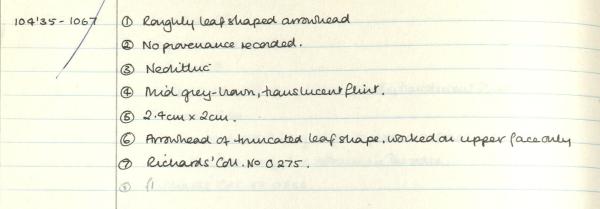 104'35-1067 ① Roughly leaf shaped arrowhead
② No provenance recorded.
③ Neolithic
④ Mid grey-brown, translucent flint.
⑤ 2.4cm x 2cm.
⑥ Arrowhead of truncated leaf shape, worked on upper face only
⑦ Richards' Coll. No 0275.